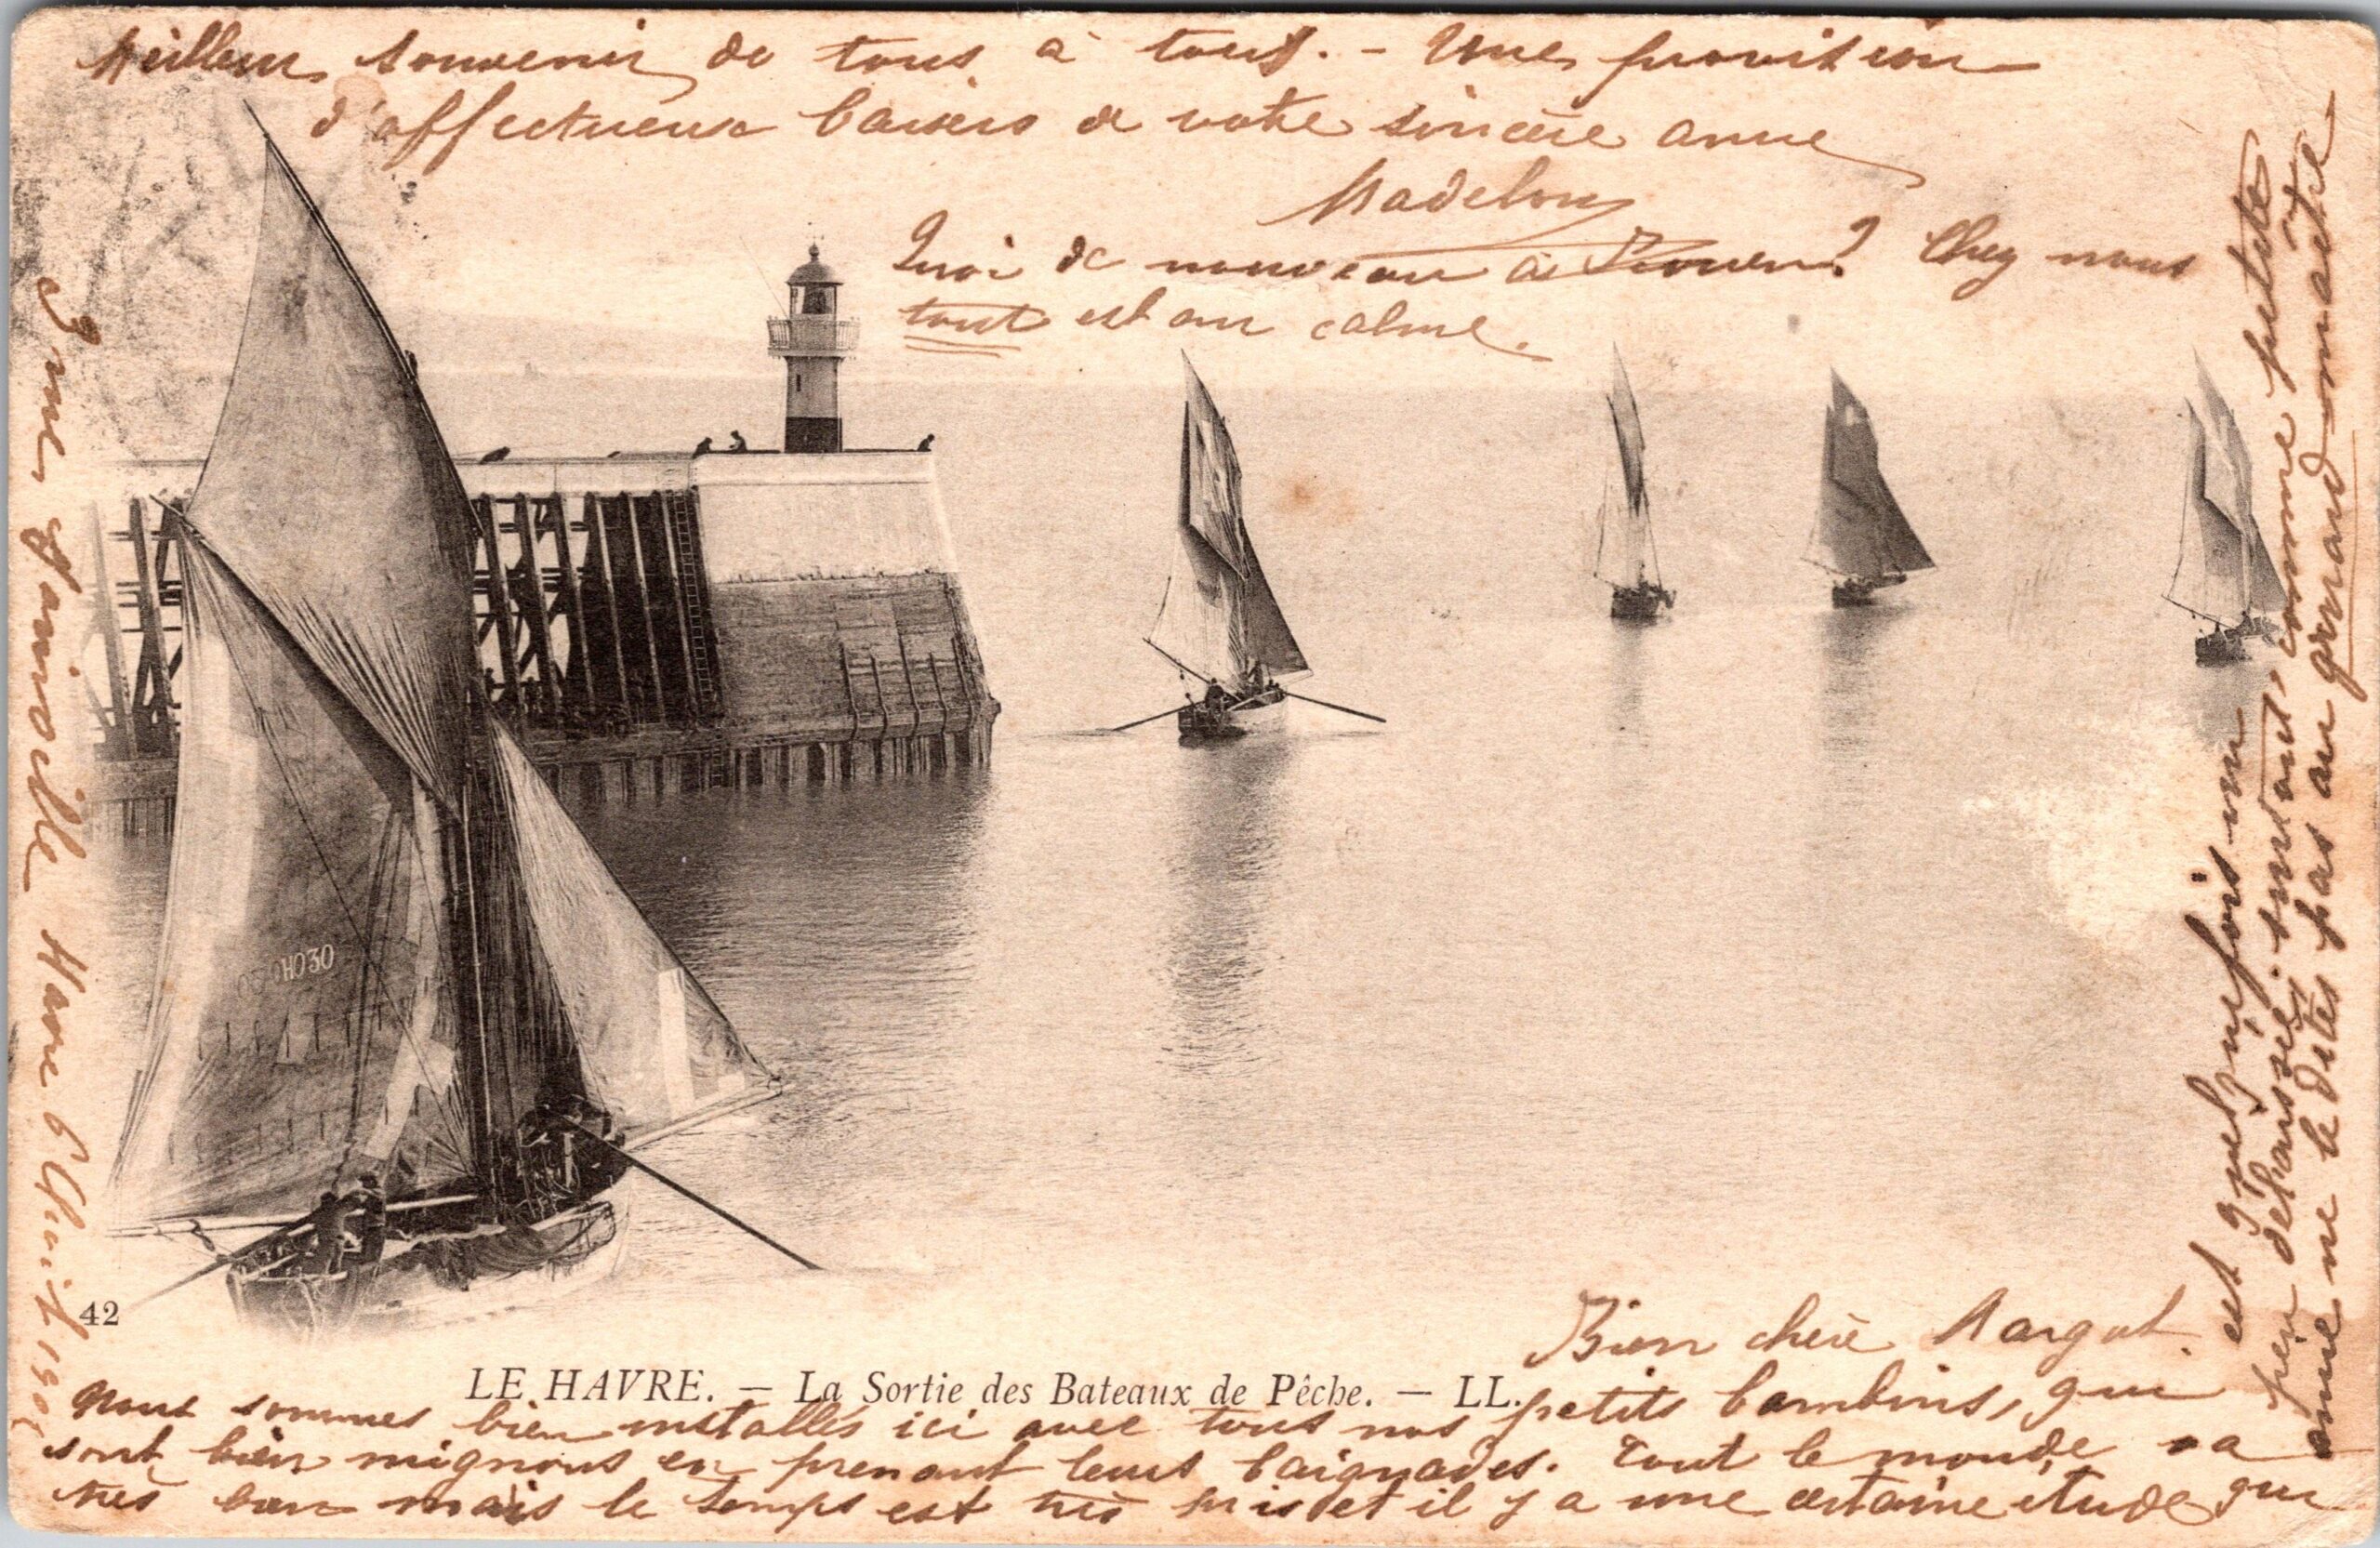 Meilleur souvenir de tous à tous. - Une provision
d'affectueux baisers de votre sincère amie
Madelon
Quoi de nouveau à Rouen? Chez nous
tout est au calme.
rue Jainville Havre 6 Août 190
HO30
42
LE HAVRE. — La Sortie des Bateaux de Pêche. — LL.
Bien chère Margot.
Nous sommes bien installés ici avec tous nos petits bambins, qui
sont bien mignons en prenant leurs baignades. Tout le monde va
très bien mais le temps est très pris et il y a une certaine étude qui
est quelquefois un
peu délaissée; surtout, comme petite
amie ne le dites pas au grrrand maître